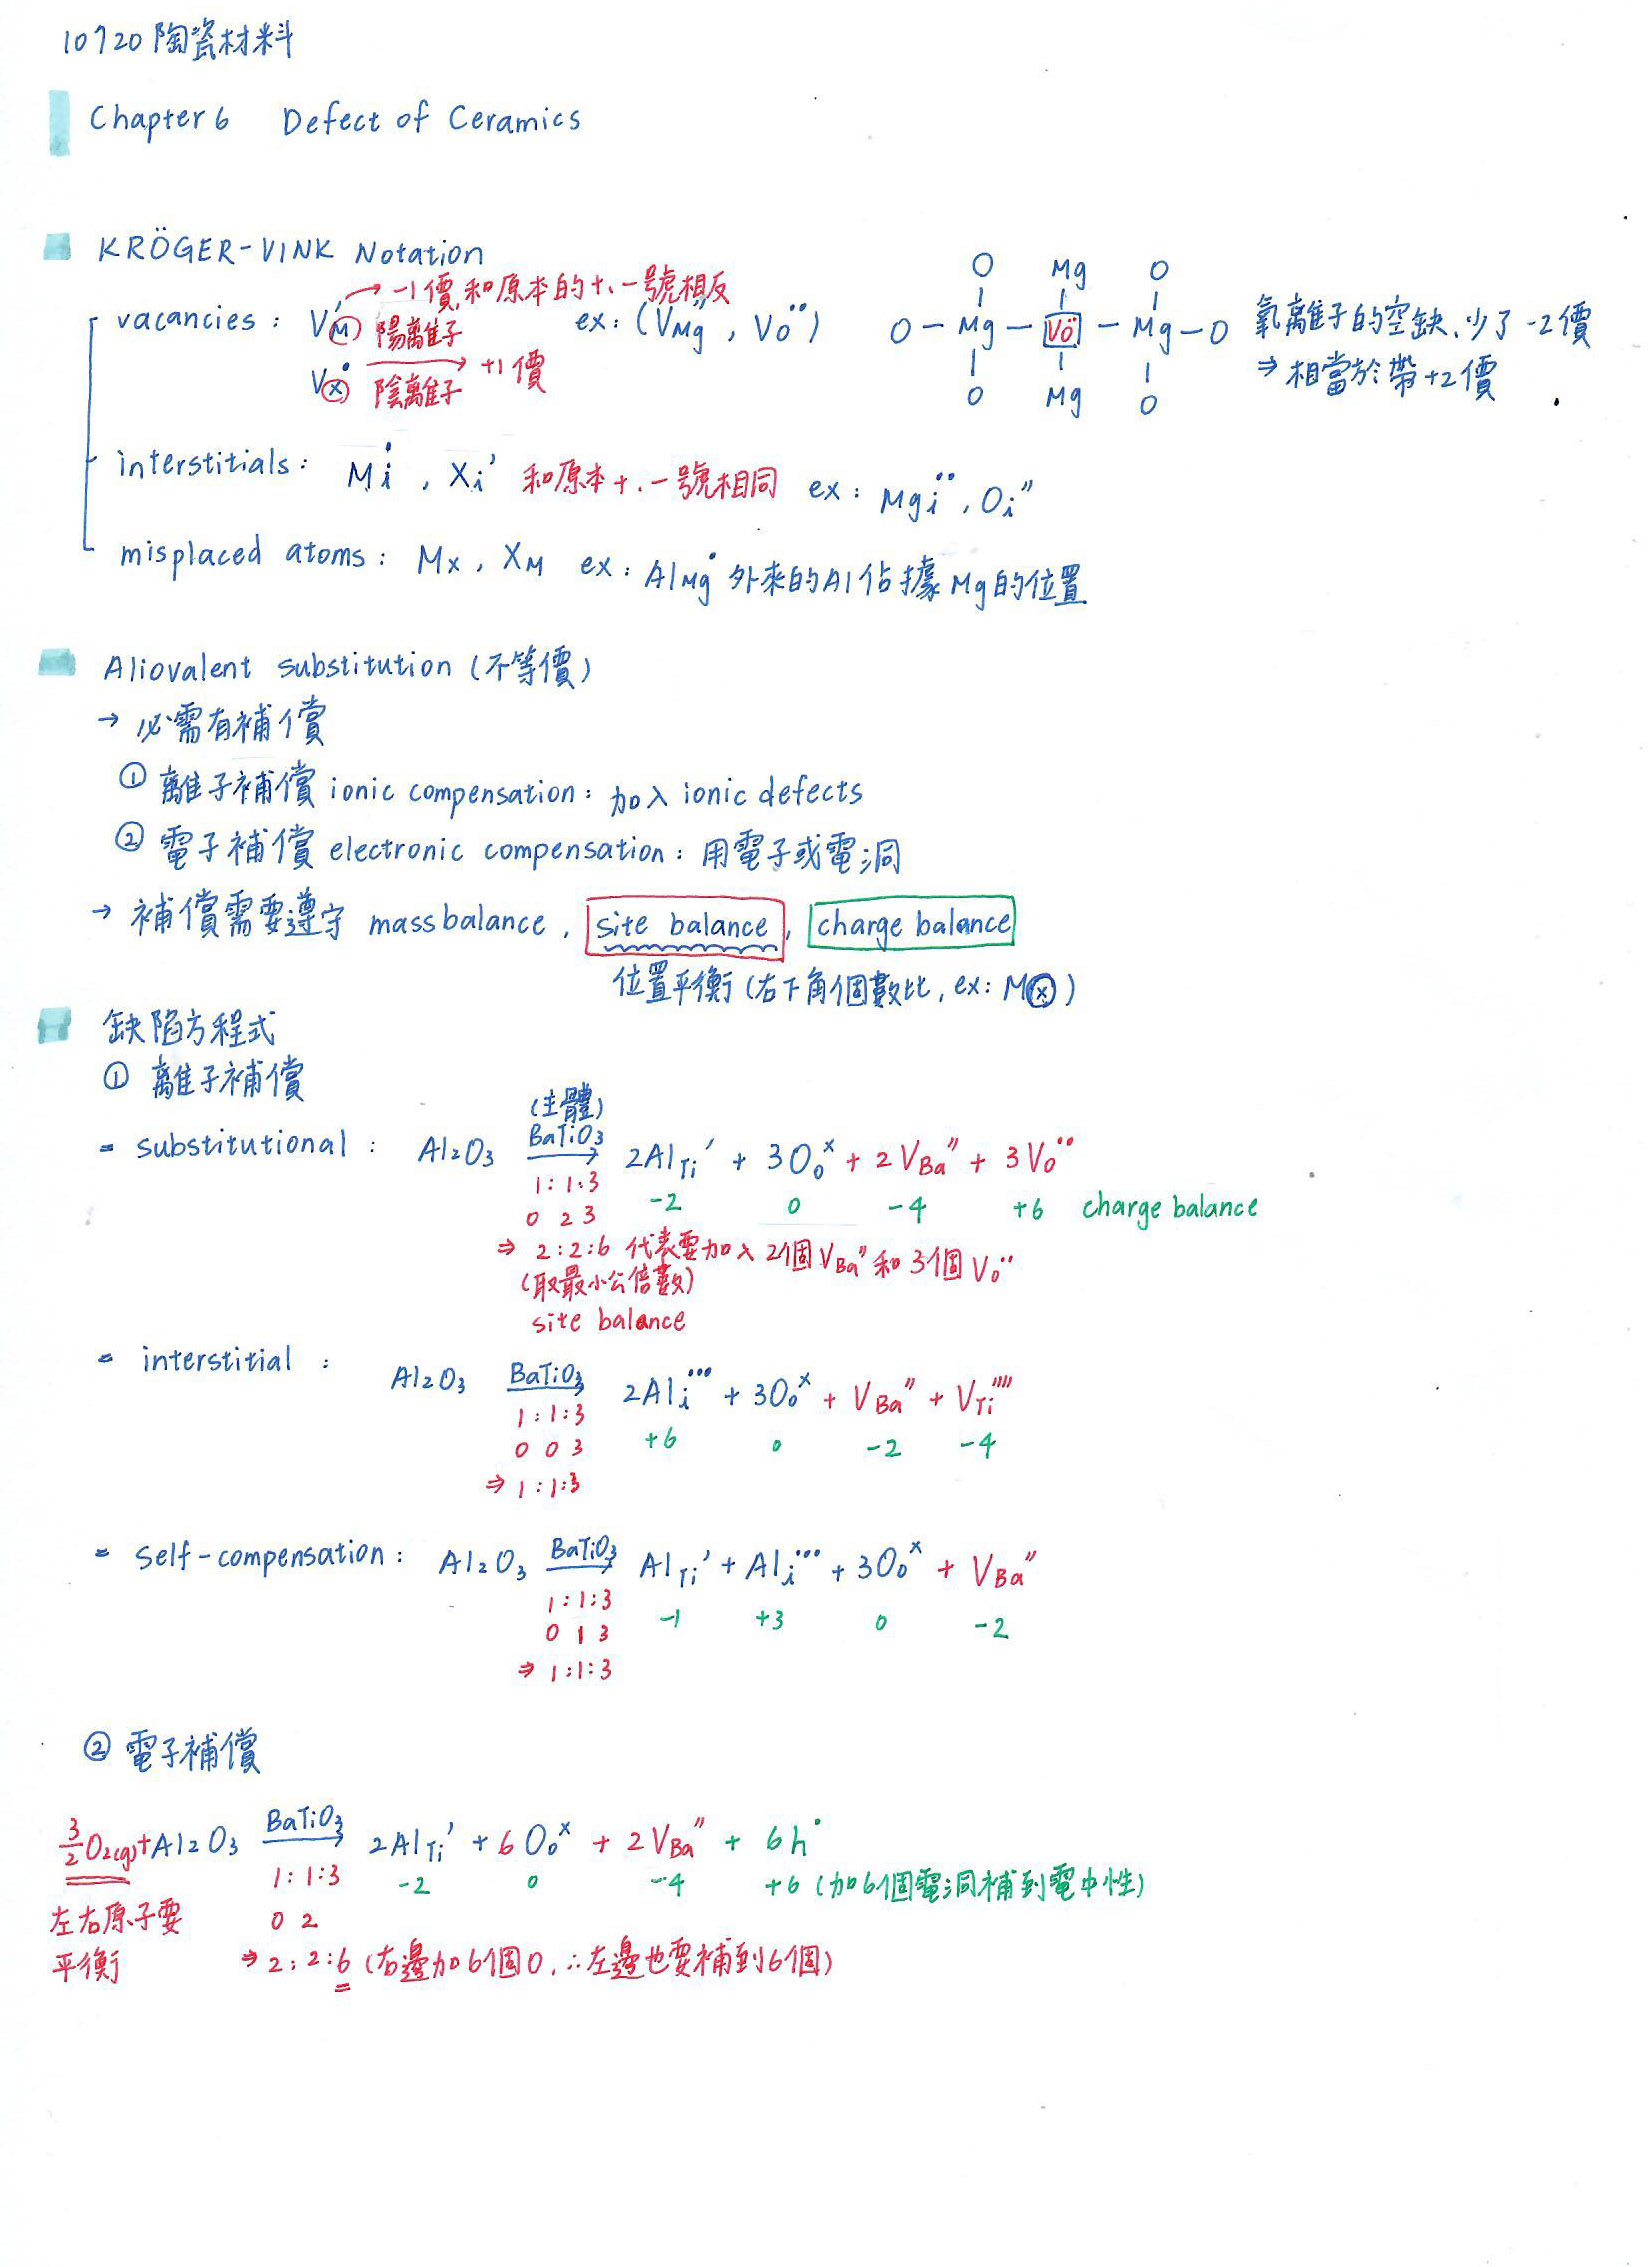 10720 陶瓷材料
Chapter 6 Defect of Ceramics
KRÖGER-VINK Notation
vacancies : V_M' 陽離子 → -1價, 和原本的+、-號相反 ex : (V_Mg'', V_O^••)
V_X^• 陰離子 → +1價
O Mg O
O - Mg - V_O^•• - Mg - O
O Mg O
氧離子的空缺、少了-2價
⇒ 相當於帶+2價
interstitials : M_i^•, X_i' 和原本+、-號相同 ex : Mg_i^••, O_i''
misplaced atoms : M_X, X_M ex : Al_Mg^• 外來的Al佔據Mg的位置
Aliovalent substitution (不等價)
→ 必需有補償
① 離子補償 ionic compensation : 加入 ionic defects
② 電子補償 electronic compensation : 用電子或電洞
→ 補償需要遵守 mass balance, site balance, charge balance
位置平衡 (右下角個數比, ex : M_X)
缺陷方程式
① 離子補償
(主體)
= substitutional : Al₂O₃ BaTiO₃→ 2Al_Ti' + 3O_O^x + 2V_Ba'' + 3V_O^••
1:1:3
-2 0 -4 +6 charge balance
0 2 3
⇒ 2:2:6 代表要加入2個V_Ba''和3個V_O^••
(取最小公倍數)
site balance
= interstitial : Al₂O₃ BaTiO₃ 2Al_i^••• + 3O_O^x + V_Ba'' + V_Ti''''
1:1:3
0 0 3 +6 0 -2 -4
⇒ 1:1:3
= self-compensation : Al₂O₃ BaTiO₃→ Al_Ti' + Al_i^••• + 3O_O^x + V_Ba''
1:1:3
-1 +3 0 -2
0 1 3
⇒ 1:1:3
② 電子補償
3/2 O₂(g) + Al₂O₃ BaTiO₃→ 2Al_Ti' + 6O_O^x + 2V_Ba'' + 6h^•
1:1:3 -2 0 -4 +6 (加6個電洞補到電中性)
左右原子要
平衡
0 2
⇒ 2:2:6 (右邊加6個O, ∴左邊也要補到6個)